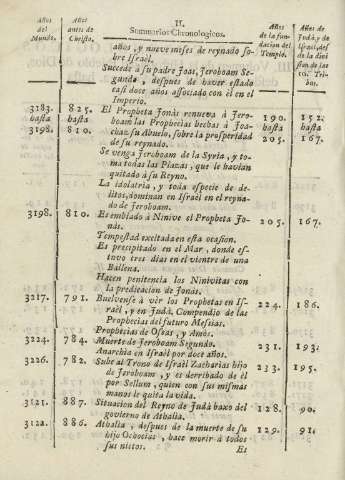 II.
Summarios Chronologicos.
Años del Mundo.
Años antes de Christo.
Años de la fundacion del Templo.
Años de Judá, y de Israël, desde la division de las 10. Tribus.
años, y nueve meses de reynado sobre Israël.
Succede à su padre Joas, Jeroboam Segundo, despues de haver estado
casi doce años associado con él en el
Imperio.
3183. hasta 3198.
825. hasta 810.
El Propheta Jonás renueva à Jeroboam las Prophecias hechas à Joachaz
su Abuelo, sobre la prosperidad
de su reynado.
190. hasta 205.
152. hasta 167.
Se venga Jeroboam de la Syria, y toma
todas las Plazas, que le havian
quitado à su Reyno.
La idolatria, y toda especie de delitos,
dominan en Israël en el reynado
de Jeroboam.
3198.
810.
Es embiado à Ninive el Propheta Jonás.
205.
167.
Tempestad excitada en esta ocasion.
Es precipitado en el Mar, donde estuvo
tres dias en el vientre de una
Ballena.
Hacen penitencia los Ninivitas con
la predicacion de Jonás.
3217.
791.
Buelvense à vér los Prophetas en Israël,
y en Judá, Compendio de las
Prophecias del futuro Messias.
224.
186.
Prophecias de Oseas, y Amós.
3224.
784.
Muerte de Jeroboam Segundo.
231.
193.
Anarchia en Israël por doce años.
3226.
782.
Sube al Trono de Israël Zacharias hijo
de Jeroboam, y es derribado de él
por Sellum, quien con sus mismas
manos le quita la vida.
233.
195.
3121.
887.
Situacion del Reyno de Judá baxo del
govierno de Athalia.
128.
90.
3122.
886.
Athalia, despues de la muerte de su
hijo Ochocias, hace morir à todos
sus nietos.
129.
91.
Es